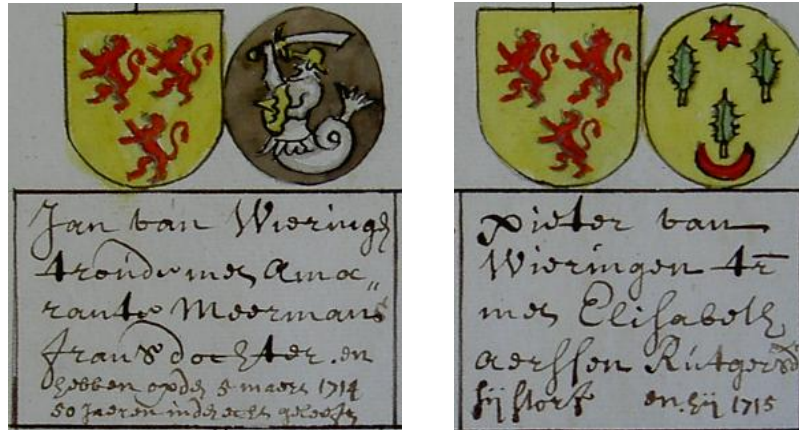 Jan van Wieringh
troúde met Ama„
rante Meermans
frans dochter. en
hebben op den 5 maert 1714
50 Jaeren in den echt geleeft
pieter van
Wieringen tr
met Elisabeth
aerssen Rútgersd
sij storf en hij 1715